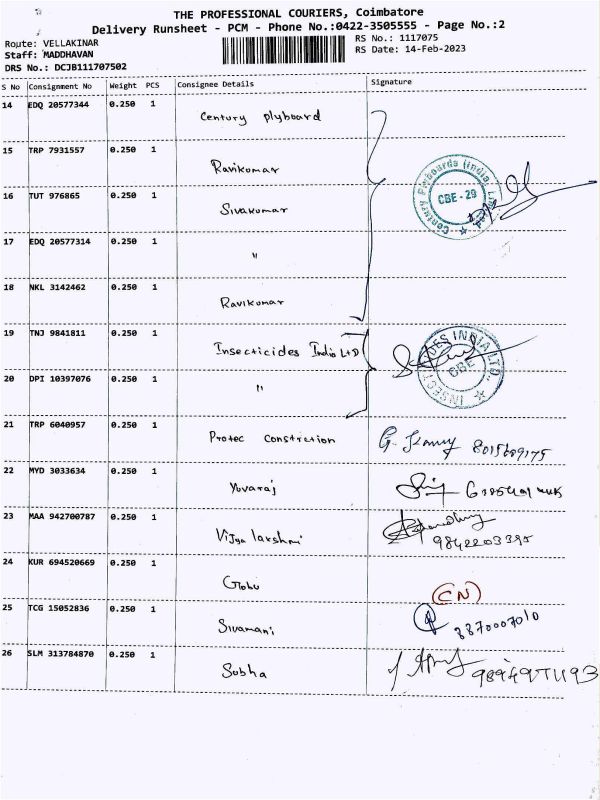 THE PROFESSIONAL COURIERS, Coimbatore
Delivery Runsheet - PCM - Phone No.:0422-3505555 - Page No.:2
Route: VELLAKINAR
RS No.: 1117075
Staff: MADDHAVAN
RS Date: 14-Feb-2023
DRS No.: DCJB111707502
S No Consignment No Weight PCS Consignee Details Signature
14 EDQ 20577344 0.250 1 Century plyboard
15 TRP 7931557 0.250 1 Ravikumar
16 TUT 976865 0.250 1 Sivakumar
Century Plyboards (India) Ltd
CBE - 29
17 EDQ 20577314 0.250 1 "
18 NKL 3142462 0.250 1 Ravikumar
19 TNJ 9841811 0.250 1 Insecticides India LTD
INDIA LTD.
CBE
20 DPI 10397076 0.250 1 "
21 TRP 6040957 0.250 1 Protec Constrction
22 MYD 3033634 0.250 1 Yuvaraj
23 MAA 942700787 0.250 1 Vijya lakshmi 9842203395
24 KUR 694520669 0.250 1 Gobu (CN)
25 TCG 15052836 0.250 1 Sivamani 8870007010
26 SLM 313784870 0.250 1 Subha